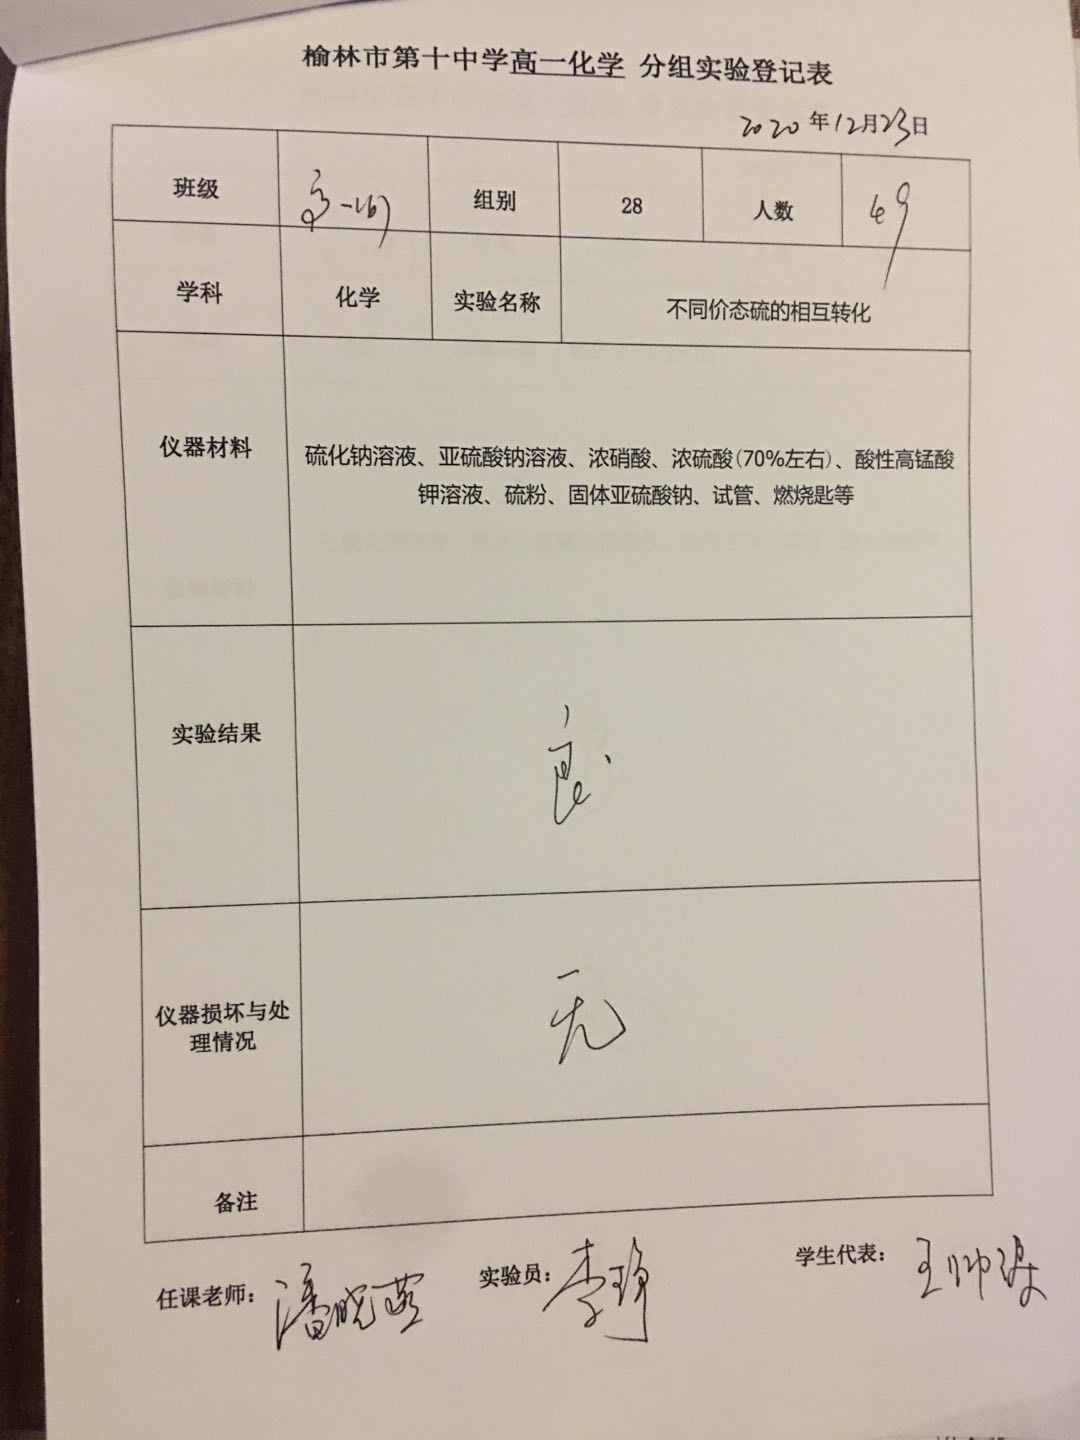 榆林市第十中学高一化学 分组实验登记表
2020年12月23日
班级 高一(6) 组别 28 人数 49
学科 化学 实验名称 不同价态硫的相互转化
仪器材料
硫化钠溶液、亚硫酸钠溶液、浓硝酸、浓硫酸(70%左右)、酸性高锰酸
钾溶液、硫粉、固体亚硫酸钠、试管、燃烧匙等
实验结果 良
仪器损坏与处
理情况
无
备注
任课老师：潘晓燕 实验员：李静 学生代表：王帅